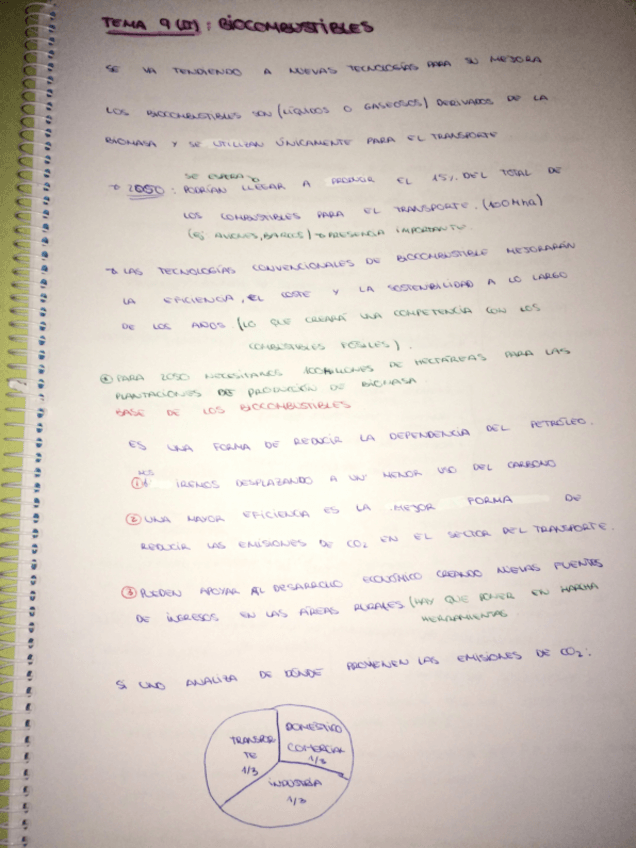 TEMA 9 (II): BIOCOMBUSTIBLES
SE VA TENDIENDO A NUEVAS TECNOLOGÍAS PARA SU MEJORA
LOS BIOCOMBUSTIBLES SON (LÍQUIDOS O GASEOSOS) DERIVADOS DE LA
BIOMASA Y SE UTILIZAN ÚNICAMENTE PARA EL TRANSPORTE
SE ESPERA
→ 2050: PODRÍAN LLEGAR A PRODUCIR EL 15% DEL TOTAL DE
LOS COMBUSTIBLES PARA EL TRANSPORTE. (100Mha)
(Ej AVIONES, BARCOS) → PRESENCIA IMPORTANTE.
→ LAS TECNOLOGÍAS CONVENCIONALES DE BIOCOMBUSTIBLE MEJORARÁN
LA EFICIENCIA, EL COSTE Y LA SOSTENIBILIDAD A LO LARGO
DE LOS AÑOS. (LO QUE CREARÁ UNA COMPETENCIA CON LOS
COMBUSTIBLES FÓSILES).
PARA 2050 NECESITAMOS 100 MILLONES DE HECTÁREAS PARA LAS
PLANTACIONES DE PRODUCCIÓN DE BIOMASA
BASE DE LOS BIOCOMBUSTIBLES
ES UNA FORMA DE REDUCIR LA DEPENDENCIA DEL PETRÓLEO.
① IREMOS DESPLAZANDO A UN MENOR USO DEL CARBONO
② UNA MAYOR EFICIENCIA ES LA MEJOR FORMA DE
REDUCIR LAS EMISIONES DE CO₂ EN EL SECTOR DEL TRANSPORTE.
③ PUEDEN APOYAR AL DESARROLLO ECONÓMICO CREANDO NUEVAS FUENTES
DE INGRESOS EN LAS ÁREAS RURALES (HAY QUE PONER EN MARCHA
HERRAMIENTAS
SI UNO ANALIZA DE DÓNDE PROVIENEN LAS EMISIONES DE CO₂:
TRANSPOR
TE
1/3
DOMÉSTICO
COMERCIAL
1/3
INDUSTRIA
1/3